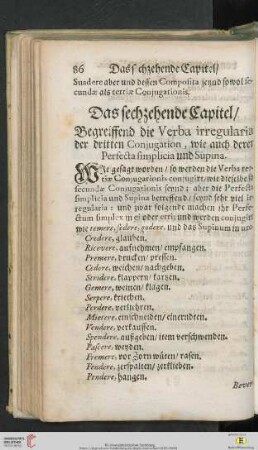 86 Das sechzehende Capitel/
Suadere aber und dessen Composita seynd sowol se-
cundæ als tertiæ Conjugationis.
Das sechzehende Capitel/
Begreiffend die Verba irregularia
der dritten Conjugation, wie auch deren
Perfecta simplicia und Supina.
Wie gesagt worden/ so werden die Verba
tiæ Conjugationis conjugirt, wie dieselbe
secundæ Conjugationis seynd; aber die Perfecta
simplicia und Supina betreffend/ seynd sehr viel
regularia: und zwar folgende machen ihr Perfe-
ctum simplex in ei oder etti, und werden conjugirt
wie temere, sedere, godere, und das Supinum in uto
Credere, glauben.
Ricevere, aufnehmen/ empfangen.
Premere, drucken/ pressen.
Cedere, weichen/ nachgeben.
Stridere, klappern/ karzen.
Gemere, weinen/ klagen.
Serpere, kriechen.
Perdere, verliehren.
Mietere, einschneiden/ einerndten.
Vendere, verkauffen.
Spendere, außgeben/ item verschwenden.
Pascere, weyden.
Fremere, vor Zorn wüten/ rasen.
Fendere, zerspalten/ zerklieben.
Pendere, hangen.
Bever